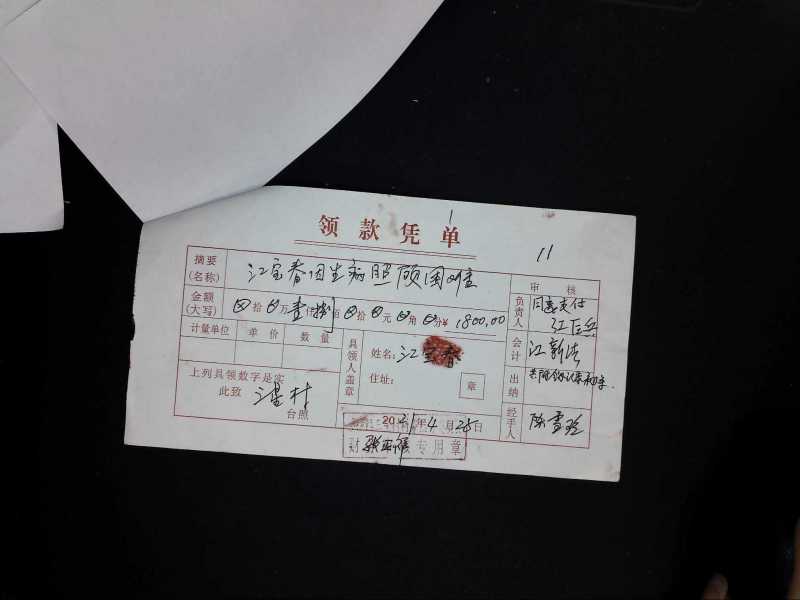 领款凭单
11
摘要(名称) 江宝春因生病照顾困难
审核
金额(大写) ⊗拾⊗万壹仟捌佰⊗拾⊗元⊗角⊗分¥ 1800.00
负责人 同意支付
计量单位 单价 数量
具领人盖章 姓名:江宝春
住址: 章
会计 江新法
出纳
上列具领数字是实
此致
台照
经手人 陈雪珍
2021年4月25日
专用章